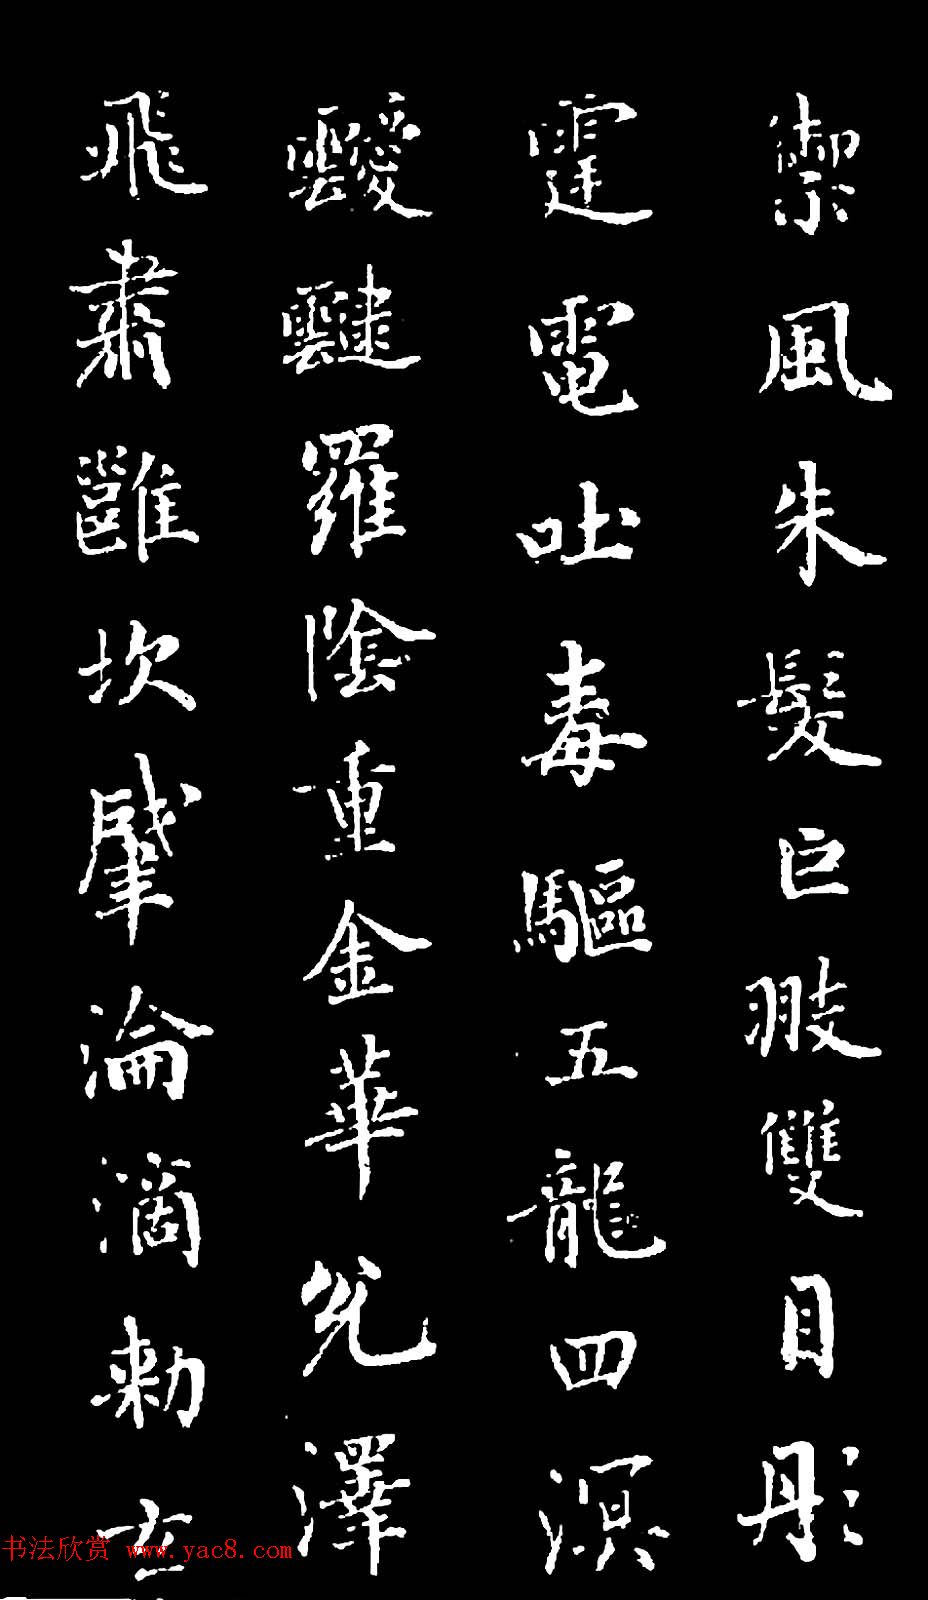 禦風朱髮巨翅雙目彤
霆電吐毒驅五龍四溟
靉靆羅陰重金華充澤
飛肅雝坎肈淪滴勅玄
书法欣赏 www.yac8.com